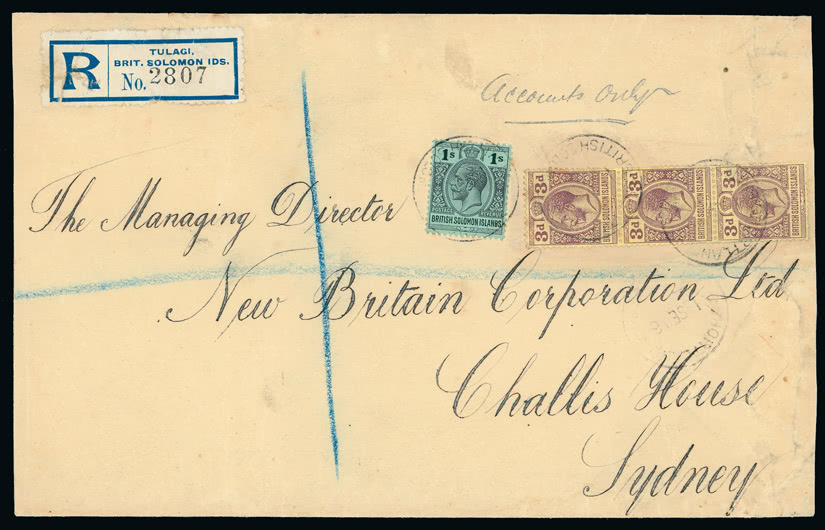 TULAGI,
BRIT. SOLOMON IDS.
R No. 2807
Accounts Only
1s 1s
POSTAGE REVENUE
BRITISH SOLOMON ISLANDS
3d 3d
BRITISH SOLOMON ISLANDS
3d 3d
BRITISH SOLOMON ISLANDS
3d 3d
BRITISH SOLOMON ISLANDS
BRITISH
The Managing Director
New Britain Corporation Ltd
Challis House
Sydney